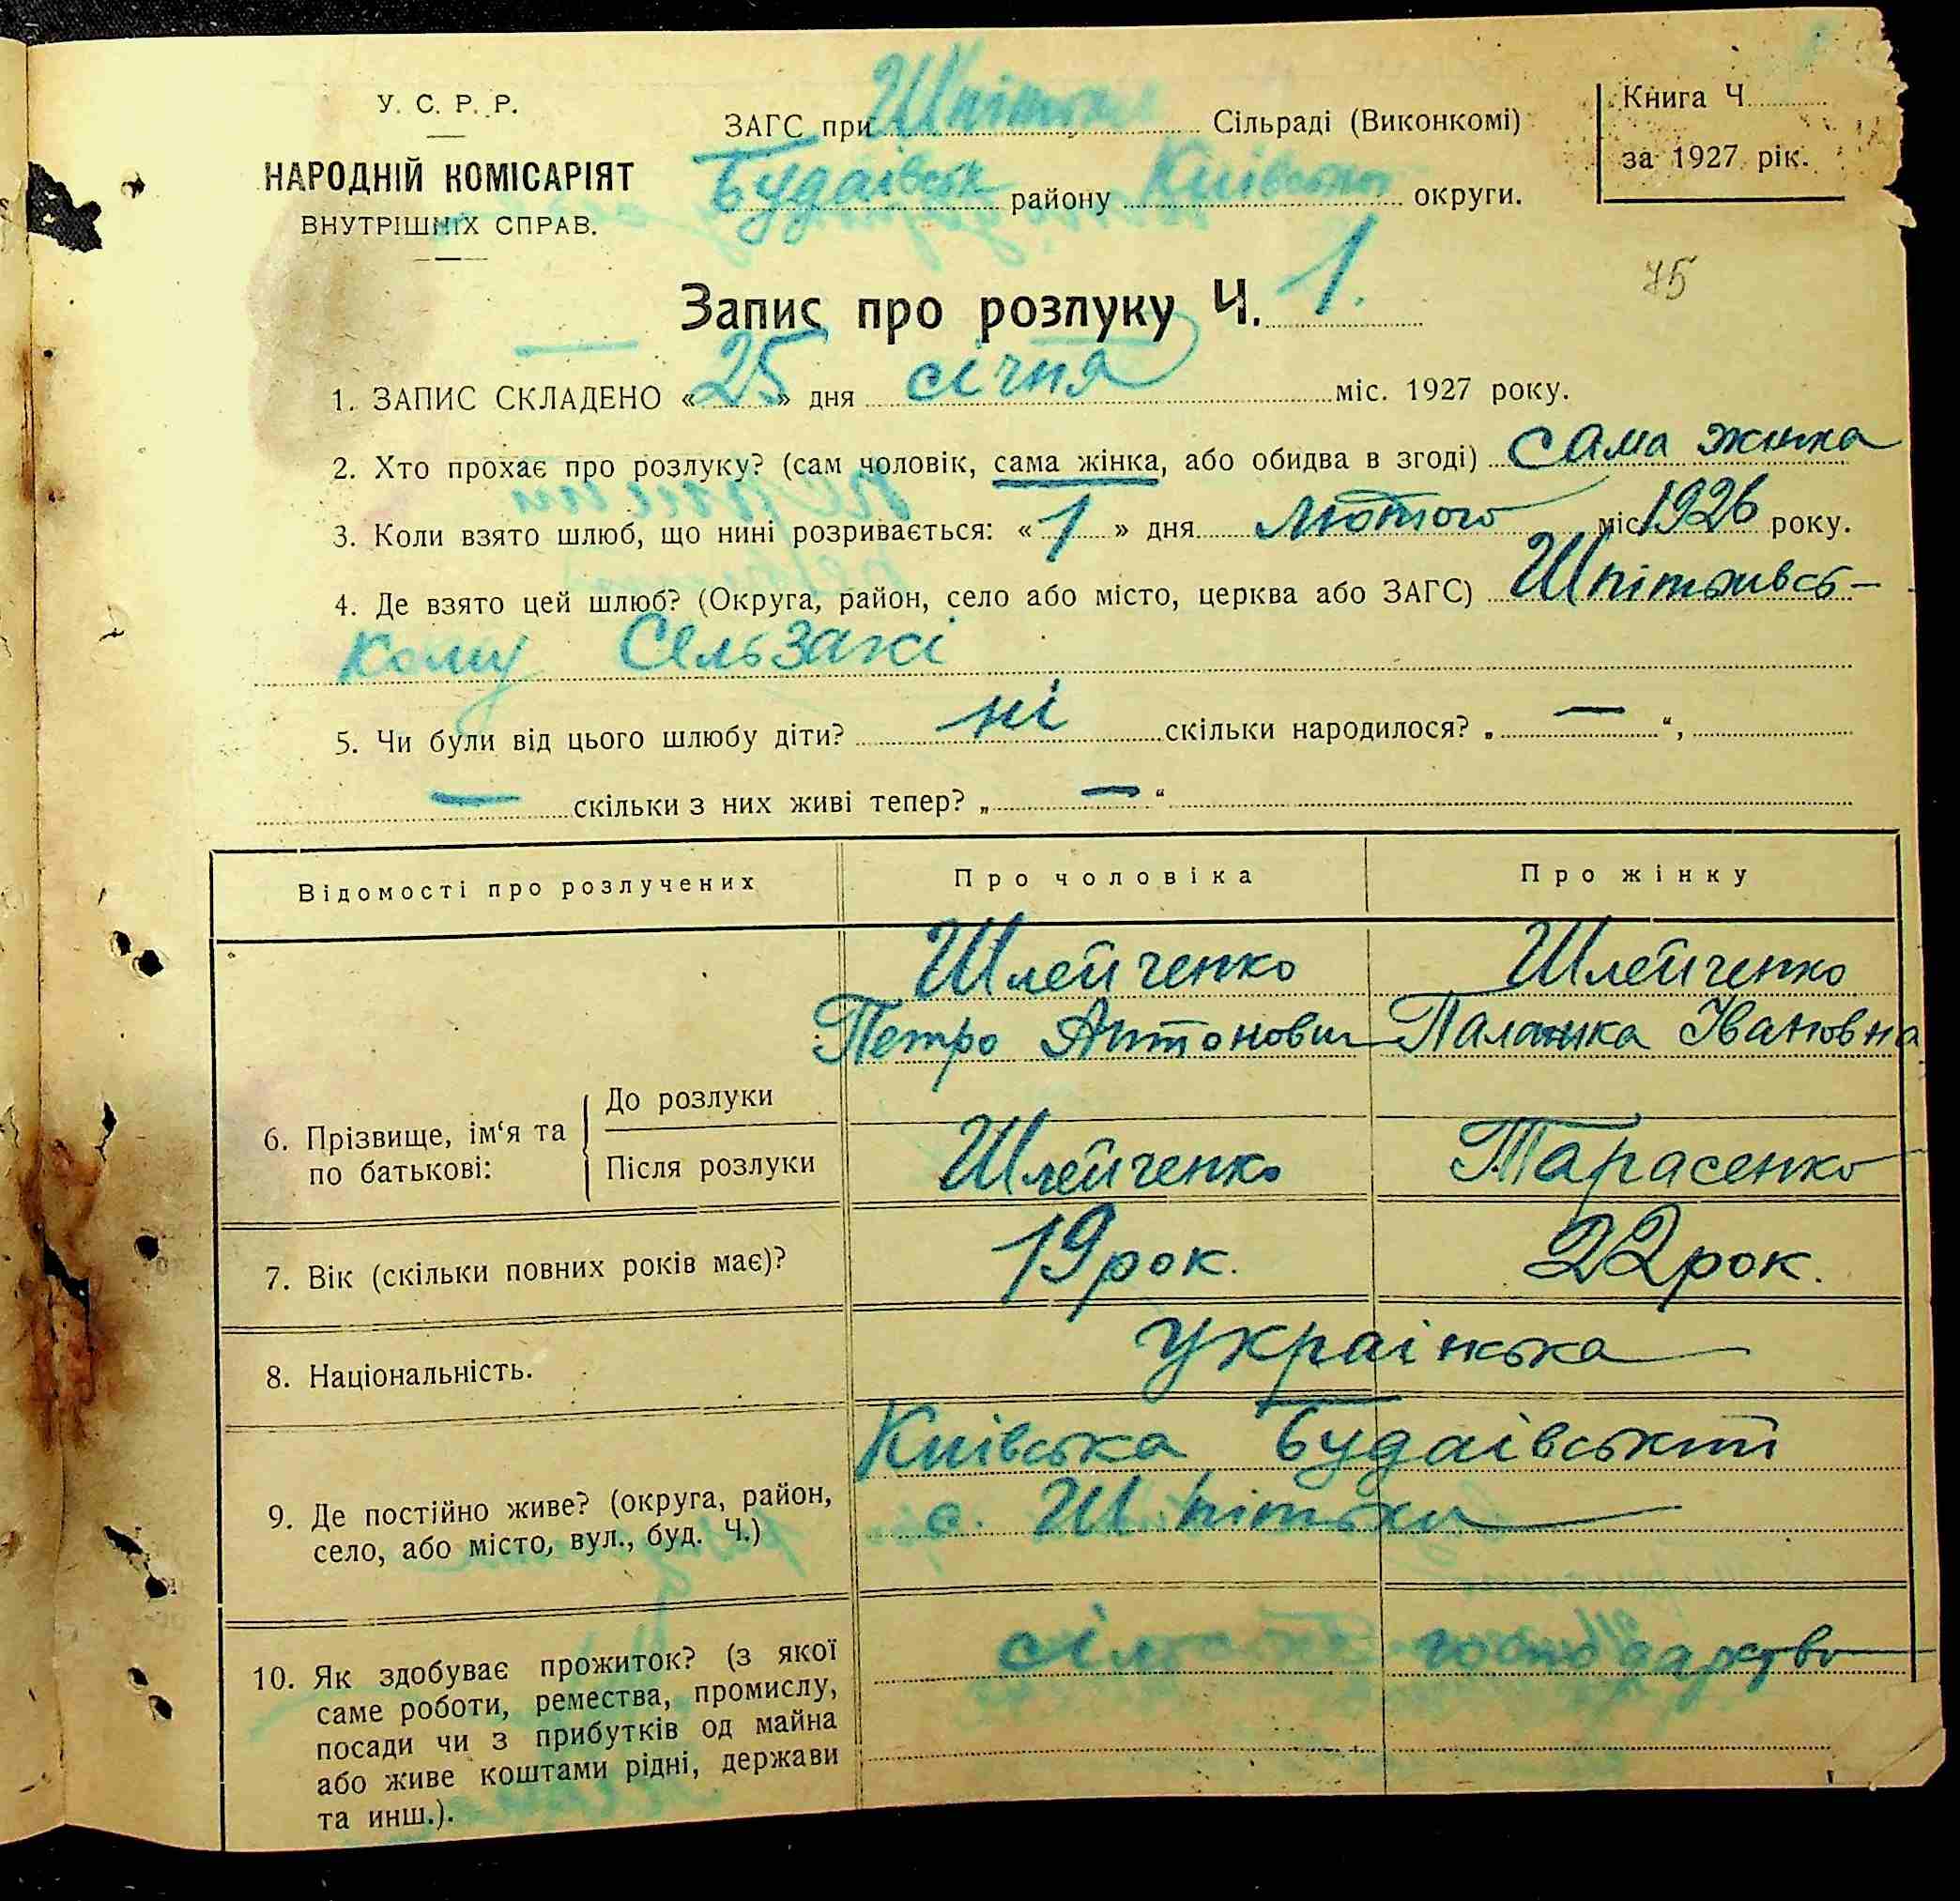 У. С. Р. Р.
НАРОДНІЙ КОМІСАРІЯТ
ВНУТРІШНІХ СПРАВ.
ЗАГС при Шпітьки Сільраді (Виконкомі)
Будаївськ району Київської округи.
Книга Ч.
за 1927 рік.
75
Запис про розлуку Ч. 1.
1. ЗАПИС СКЛАДЕНО « 25 » дня січня міс. 1927 року.
2. Хто прохає про розлуку? (сам чоловік, сама жінка, або обидва в згоді) сама жинка
3. Коли взято шлюб, що нині розривається: « 1 » дня лютого міс 1926 року.
4. Де взято цей шлюб? (Округа, район, село або місто, церква або ЗАГС) Шпітьківсь-
кому Сельзаксі
5. Чи були від цього шлюбу діти? ні скільки народилося? „ — “,
— скільки з них живі тепер? „ — “
Відомості про розлучених Про чоловіка Про жінку
Шлейченко Шлейченко
Петро Антонович Палажка Івановна
6. Прізвище, ім‘я та по батькові:
До розлуки
Після розлуки Шлейченко Тарасенко
7. Вік (скільки повних років має)? 19 рок. 22 рок.
8. Національність. украінська
9. Де постійно живе? (округа, район,
село, або місто, вул., буд. Ч.)
Київська Будаівський
с. Шпітьки
10. Як здобуває прожиток? (з якої
саме роботи, ремества, промислу,
посади чи з прибутків од майна
або живе коштами рідні, держави
та инш.).
господарство